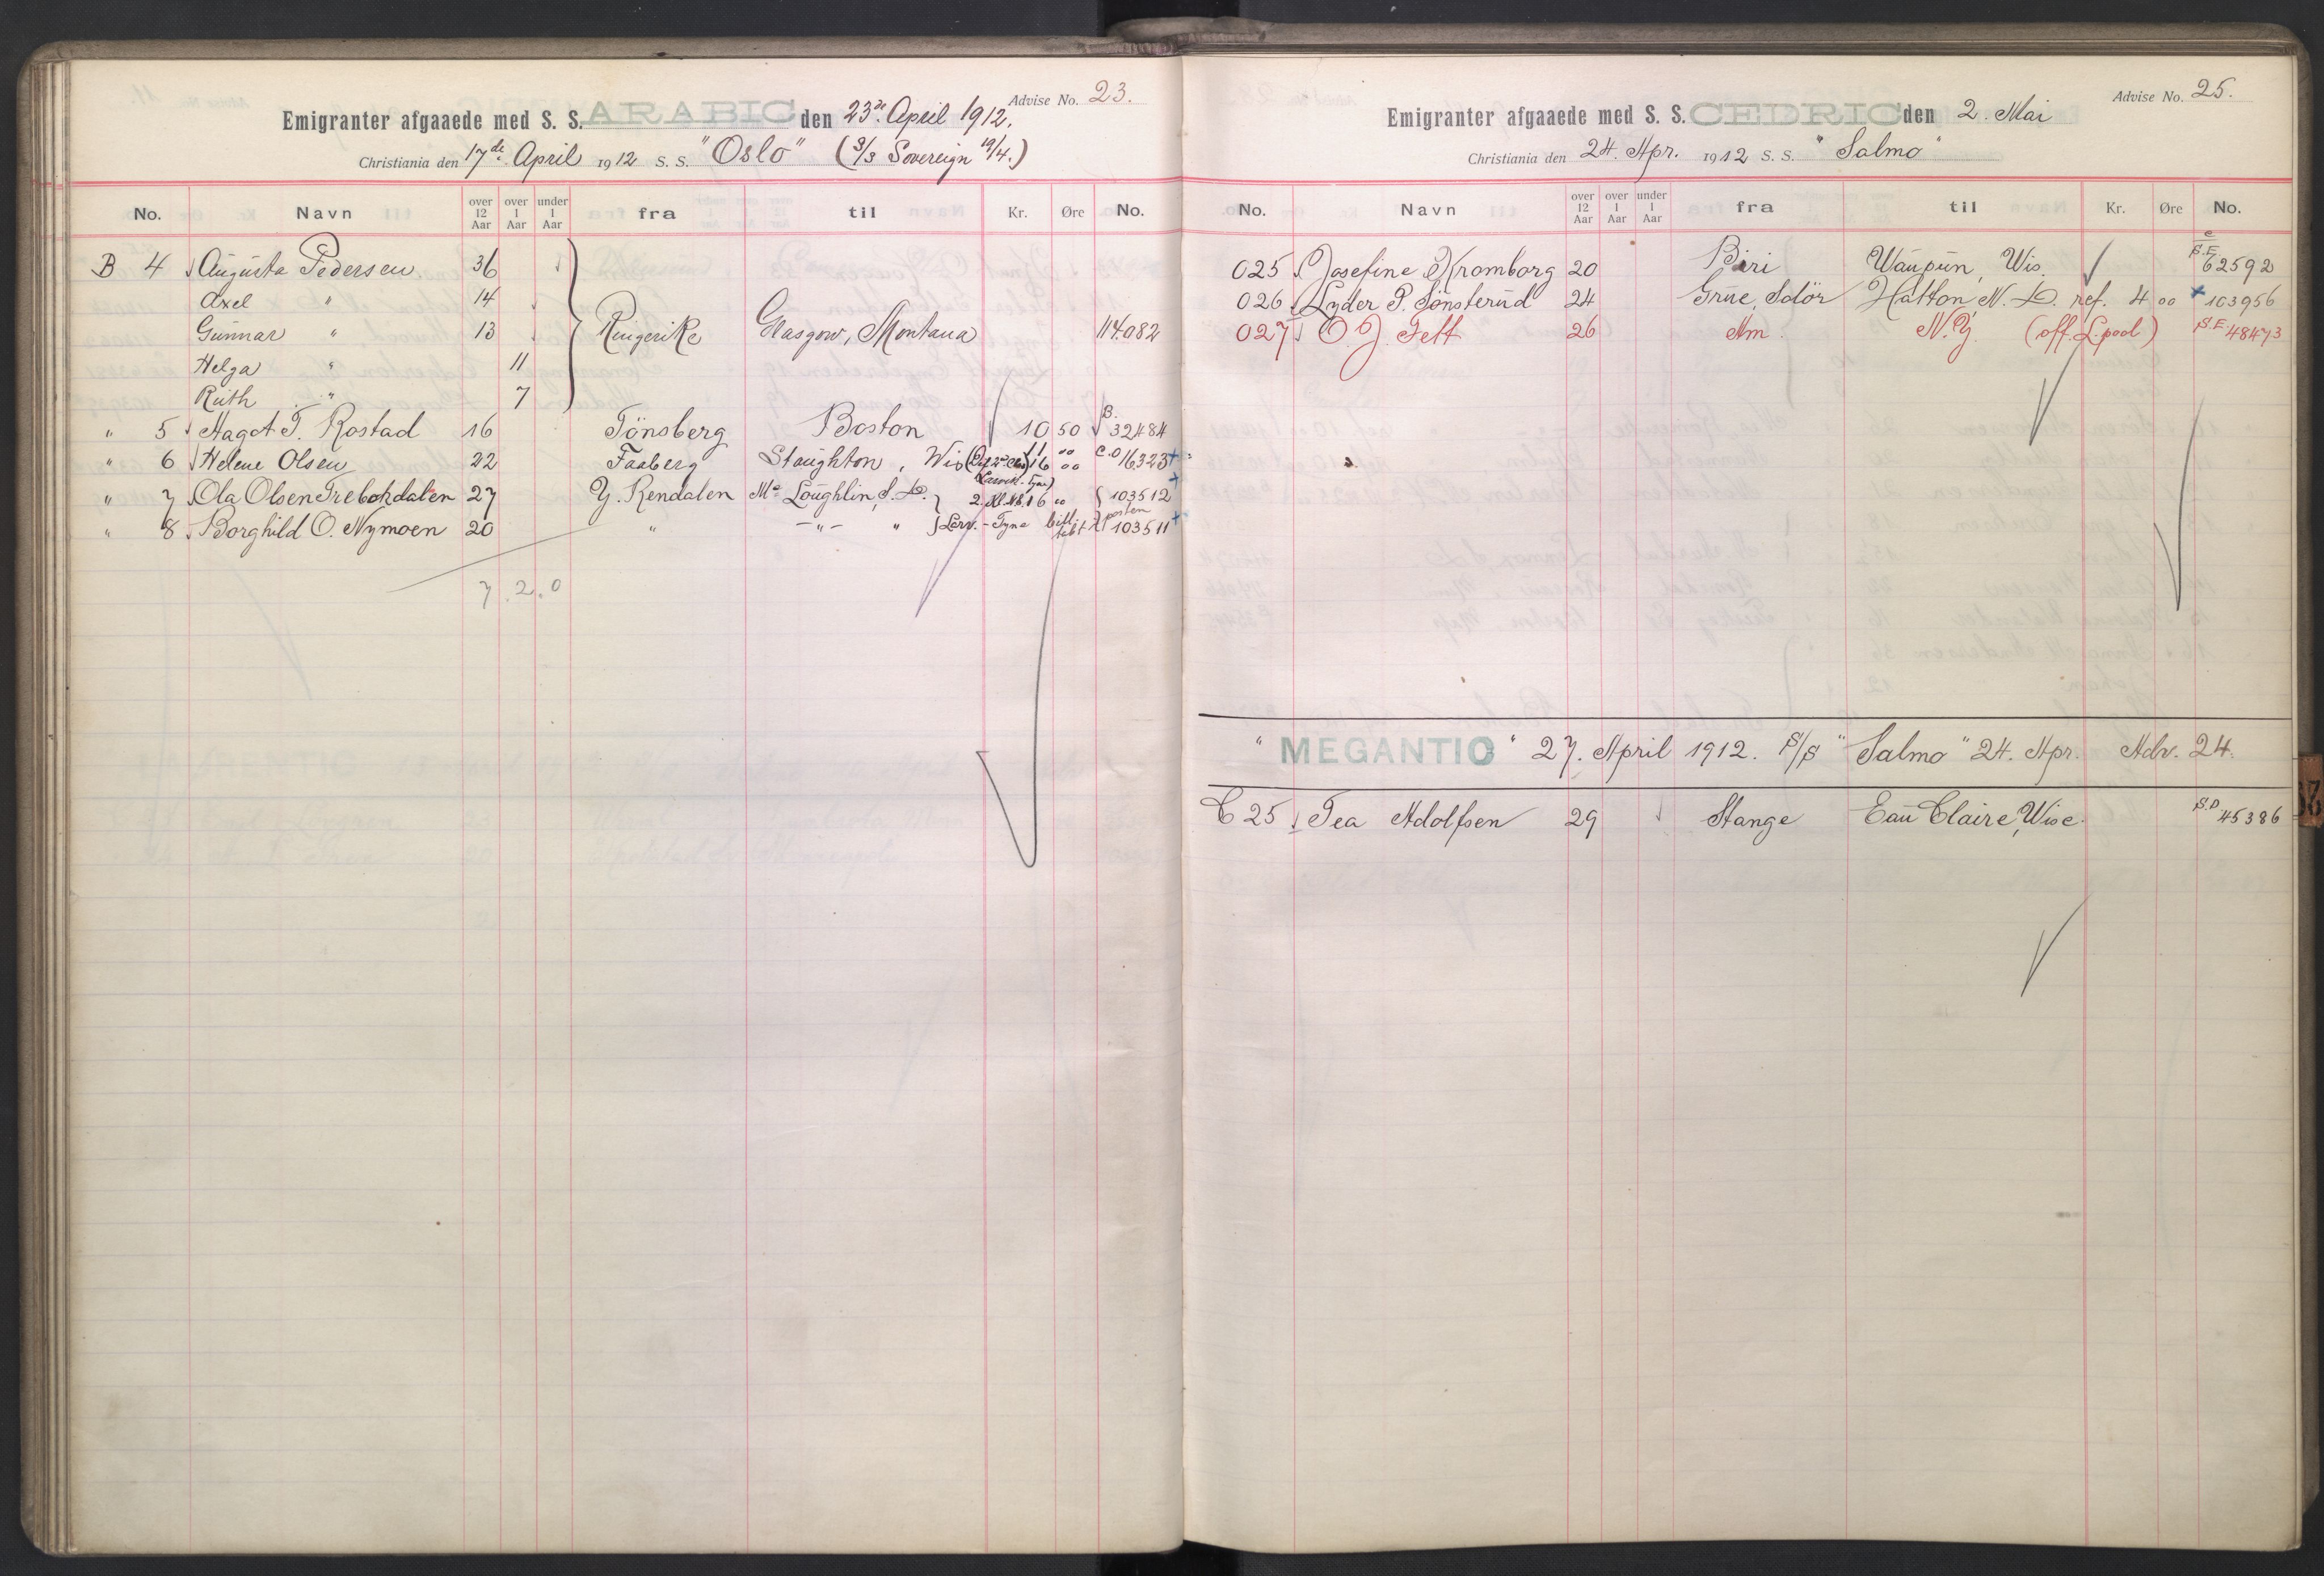 Advise No. 23.
Emigranter afgaaede med S. S. ARABIC den 23de April 1912.
Christiania den 17de April 1912 S. S. "Oslo" (S/S Sovereign 19/4.)
No. Navn over 12 Aar over 1 Aar under 1 Aar fra til Kr. Øre No.
B 4 Augusta Pedersen 36
Axel " 14
Gunnar " 13 Ringerike Glasgow, Montana 114082
Helga " 11
Ruth " 7
" 5 Hagot T. Rostad 16 Tönsberg Boston 10 50 B. 32484
" 6 Helene Olsen 22 Faaberg Stoughton, Wis 16 00 C.O 16323 +
" 7 Ola Olsen Trebokdalen 27 Y. Rendalen Mc Loughlin, S. D. 2. Kl. 16 00 103512
" 8 Borghild O. Nymoen 20 " -"- " Larv. - Tyne 103511 +
7. 2. 0
Advise No. 25.
Emigranter afgaaede med S. S. CEDRIC den 2. Mai
Christiania den 24. Apr. 1912 S. S. "Salmo"
No. Navn over 12 Aar over 1 Aar under 1 Aar fra til Kr. Øre No.
025 Josefine Kromborg 20 Biri Waupun, Wis. S.E. 62592
026 Lyder P. Sönsterud 24 Grue, Solör Hatton N. D. ref. 4 00 + 103956
027 O. J. Telt 26 Am. N.Y. (off. L.pool) S.E. 48473
" MEGANTIC " 27. April 1912. S/S "Salmo" 24. Apr. Adv. 24.
C 25 Tea Adolfsen 29 Stange Eau Claire, Wisc. S.D. 45386